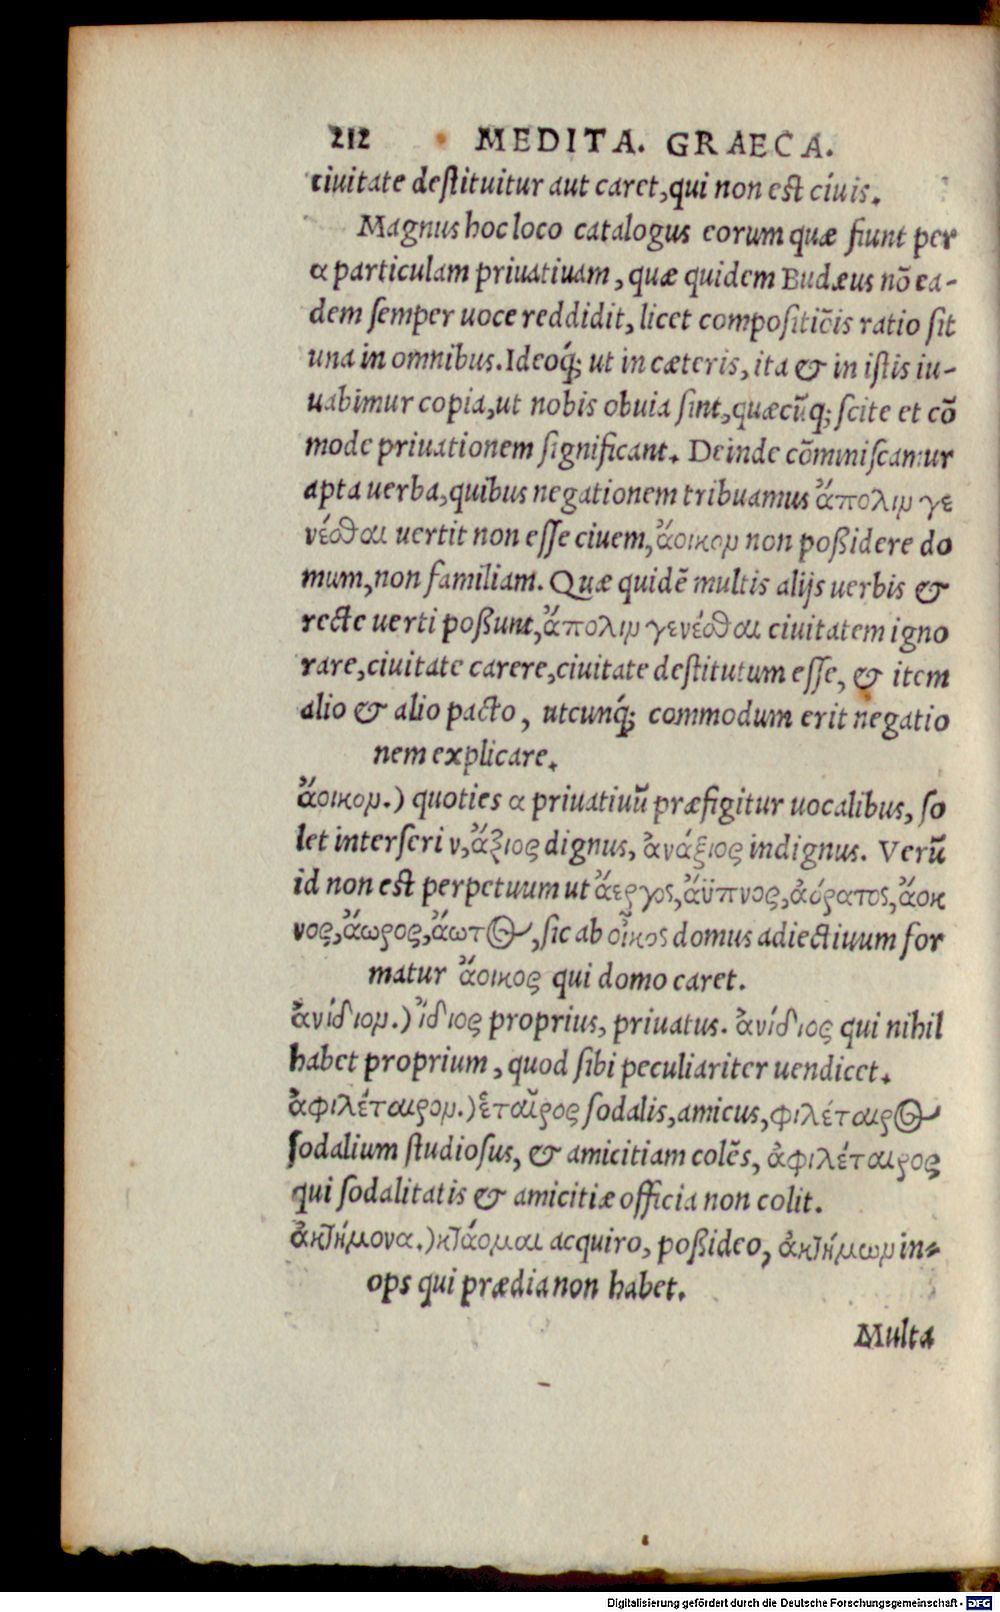 212 MEDITA. GRAECA.
ciuitate destituitur aut caret, qui non est ciuis.
Magnus hoc loco catalogus eorum quæ fiunt per
α particulam priuatiuam, quæ quidem Budæus nõ ea-
dem semper uoce reddidit, licet compositiõis ratio sit
una in omnibus. Ideoq́; ut in cæteris, ita & in istis iu-
uabimur copia, ut nobis obuia sint, quæcũq; scite et cõ
mode priuationem significant. Deinde cõminiscamur
apta uerba, quibus negationem tribuamus ἄπολιν γε
νέσθαι uertit non esse ciuem, ἄοικον non poßidere do
mum, non familiam. Quæ quidẽ multis alijs uerbis &
recte uerti poßunt, ἄπολιν γενέσθαι ciuitatem igno
rare, ciuitate carere, ciuitate destitutum esse, & item
alio & alio pacto, utcunq́; commodum erit negatio
nem explicare.
ἄοικον.) quoties α priuatiuũ præfigitur uocalibus, so
let interseri ν, ἄξιος dignus, ἀνάξιος indignus. Verũ
id non est perpetuum ut ἄεργος, ἄϋπνος, ἀόρατος, ἄοκ
νος, ἄωρος, ἄωτος, sic ab οἶκος domus adiectiuum for
matur ἄοικος qui domo caret.
ἀνίδιον.) ἴδιος proprius, priuatus. ἀνίδιος qui nihil
habet proprium, quod sibi peculiariter uendicet.
ἀφιλέταιρον.) ἑταῖρος sodalis, amicus, φιλέταιρος
sodalium studiosus, & amicitiam colẽs, ἀφιλέταιρος
qui sodalitatis & amicitiæ officia non colit.
ἀκτήμονα.) κτάομαι acquiro, poßideo, ἀκτήμων in-
ops qui prædia non habet.
Multa
Digitalisierung gefördert durch die Deutsche Forschungsgemeinschaft - DFG